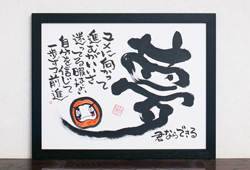 夢
ユメに向かって
進むがいいさ
迷ってる暇はない
自分を信じて
一歩ずつ前進
君ならできる